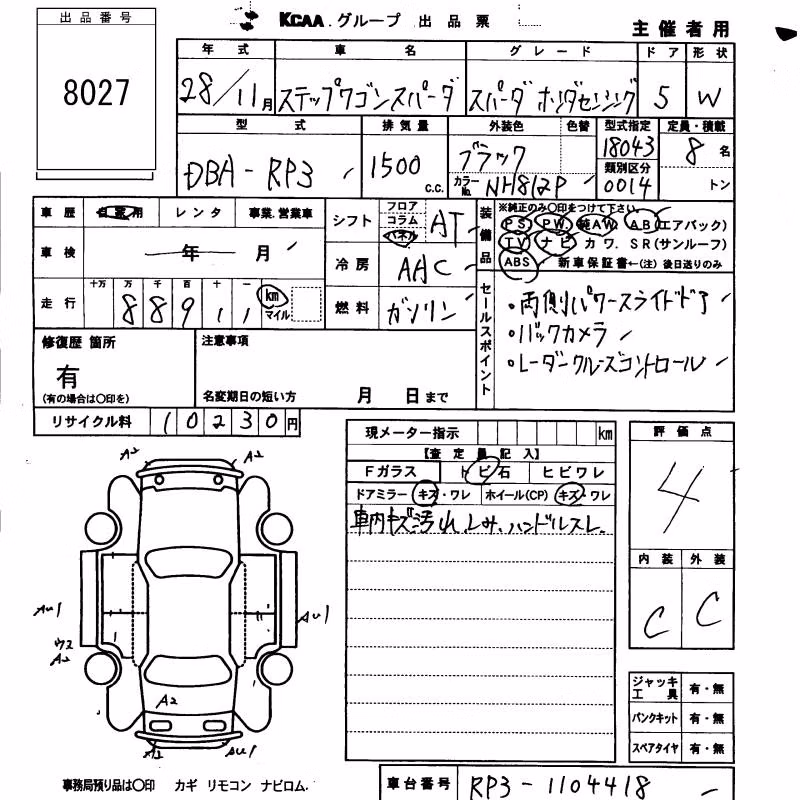 KCAA.グループ 出品票
主催者用
出品番号
8027
年式 車名 グレード ドア 形状
28/11月 ステップワゴンスパーダ スパーダ ホンダセンシング 5 W
型式 排気量 外装色 色替 型式指定 定員・積載
DBA-RP3 1500 c.c. ブラック 18043 8名
カラーNo. NH812P 類別区分 0014 トン
車歴 自家用 レンタ 事業.営業車
シフト フロア コラム パネル AT
装備品 ※純正のみ〇印をつけて下さい
PS PW. 純AW A.B(エアバック)
TV ナビ カワ. SR(サンルーフ)
ABS 新車保証書←(注)後日送りのみ
車検 年 月
冷房 AAC
走行 十万 万 千 百 十 一
88911 km マイル
燃料 ガソリン
セールスポイント
・両側パワースライドドア
・バックカメラ
・レーダークルーズコントロール
修復歴 箇所
有
(有の場合は〇印を)
注意事項
名変期日の短い方 月 日まで
リサイクル料 10230円
現メーター指示 km
【査定員記入】
Fガラス トビ石 ヒビワレ
ドアミラー キズ・ワレ ホイール(CP) キズ・ワレ
車内キズ汚れ、シミ、ハンドルスレ
評価点
4
内装 外装
C C
A2 A2
AU1 AU1
ワス
A2
A2
A2 AU1
ジャッキ工具 有・無
パンクキット 有・無
スペアタイヤ 有・無
事務局預り品は〇印 カギ リモコン ナビロム.
車台番号 RP3-1104418